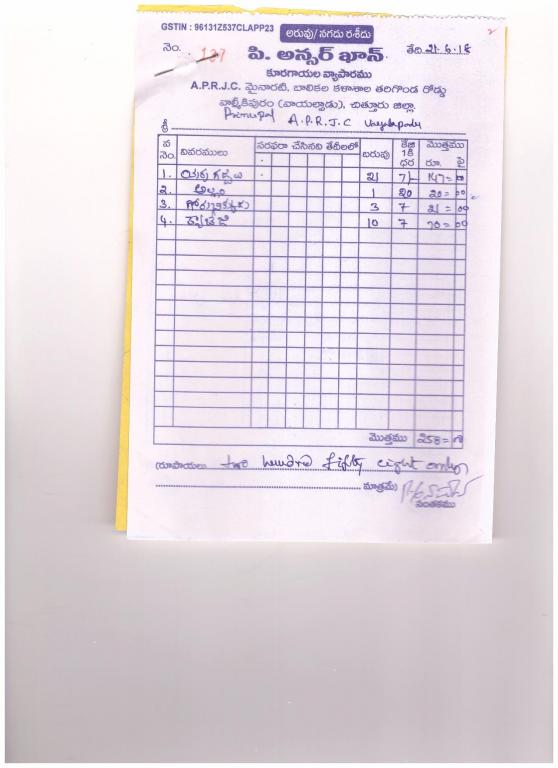 GSTIN : 96131Z537CLAPP23 అరువు/ నగదు రశీదు
నెం. 137 పి. అన్సర్ ఖాన్. తేది 21-6-18
కూరగాయల వ్యాపారము
A.P.R.J.C. మైనారటి, బాలికల కళాశాల తరిగొండ రోడ్డు
వాల్మీకిపురం (వాయల్పాడు), చిత్తూరు జిల్లా.
Principal A.P.R.J.C
శ్రీ
వ నెం. వివరములు సరఫరా చేసినవి తేదీలలో బరువు కేజి 1కి ధర మొత్తము రూ. పై
1. 21 7/- 147=00
2. అల్లం 1 20 20=00
3. గోరుచిక్కుడు 3 7 21=00
4. 10 7 70=00
మొత్తము 258=00
(రూపాయలు two hundred fifty eight only
మాత్రమే)
సంతకము